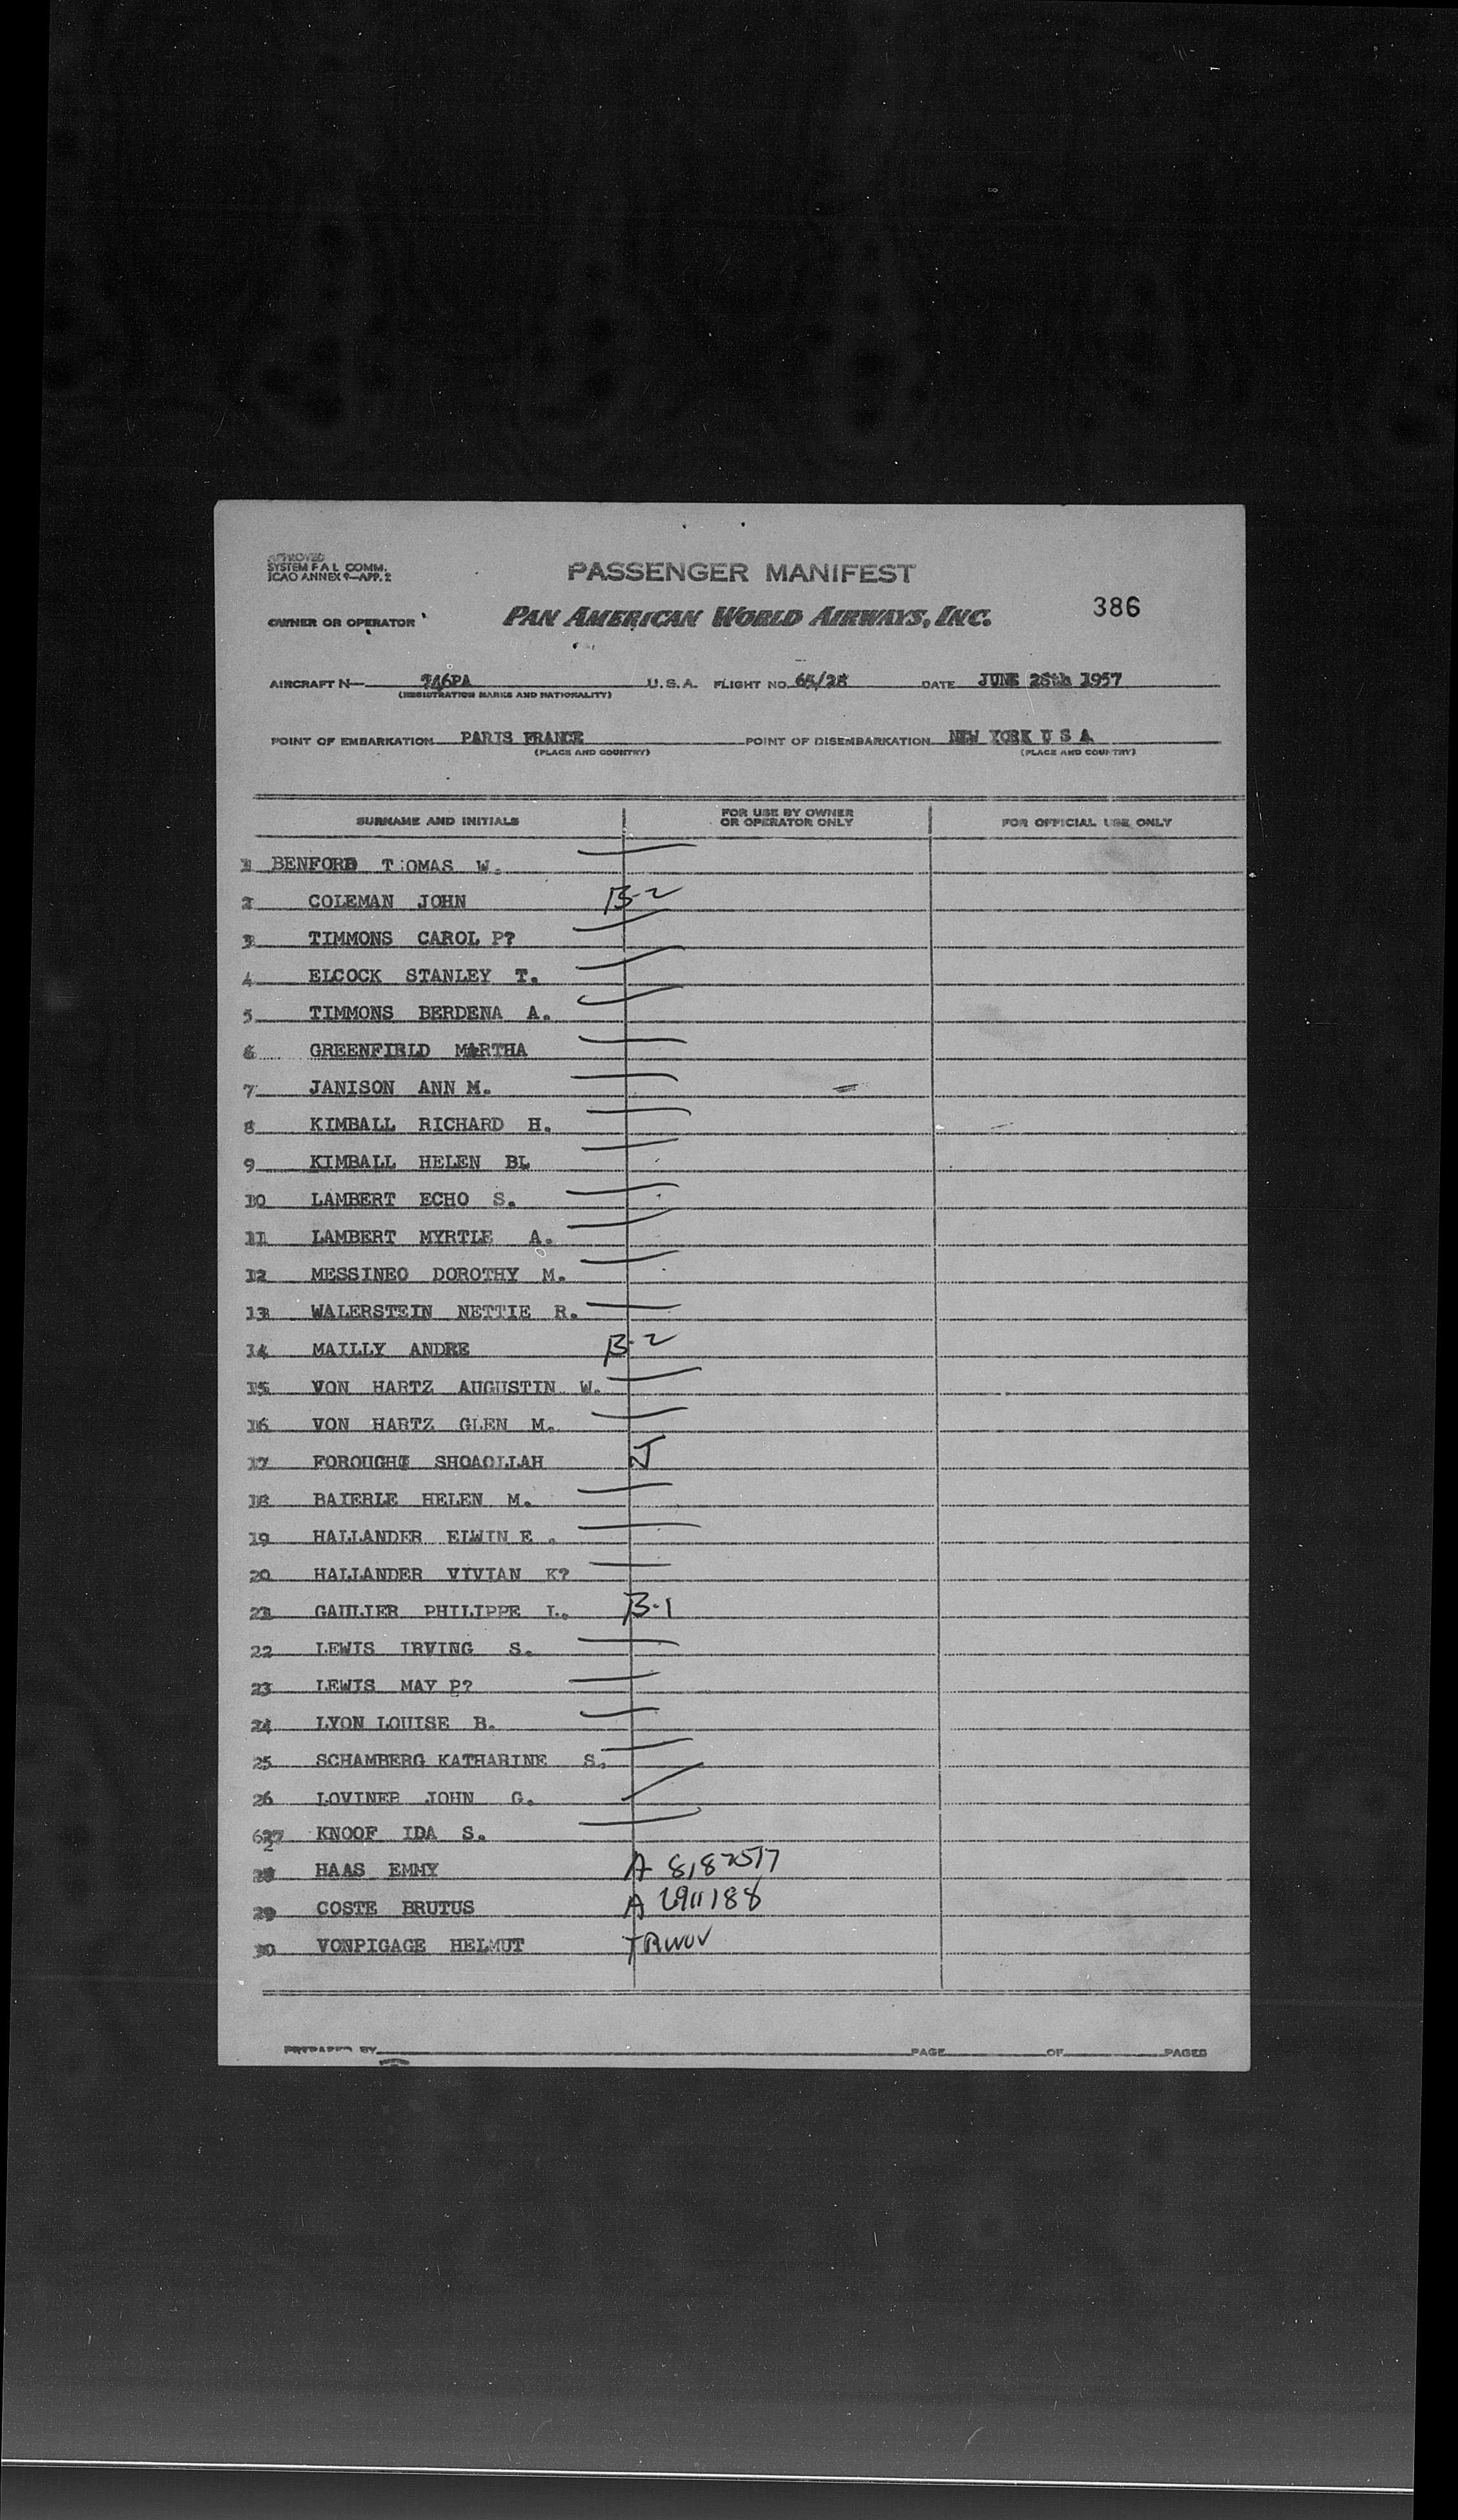 APPROVED
SYSTEM F A L COMM.
ICAO ANNEX 9—APP. 2
PASSENGER MANIFEST
386
OWNER OR OPERATOR PAN AMERICAN WORLD AIRWAYS, INC.
AIRCRAFT N— 746PA U.S.A. FLIGHT NO. 65/28 DATE JUNE 28th 1957
(REGISTRATION MARKS AND NATIONALITY)
POINT OF EMBARKATION PARIS FRANCE POINT OF DISEMBARKATION NEW YORK U S A
(PLACE AND COUNTRY) (PLACE AND COUNTRY)
SURNAME AND INITIALS FOR USE BY OWNER OR OPERATOR ONLY FOR OFFICIAL USE ONLY
1 BENFORD THOMAS W.
2 COLEMAN JOHN B-2
3 TIMMONS CAROL P?
4 ELCOCK STANLEY T.
5 TIMMONS BERDENA A.
6 GREENFIELD MARTHA
7 JANISON ANN M.
8 KIMBALL RICHARD H.
9 KIMBALL HELEN BL
10 LAMBERT ECHO S.
11 LAMBERT MYRTLE A.
12 MESSINEO DOROTHY M.
13 WALERSTEIN NETTIE R.
14 MAILLY ANDRE B-2
15 VON HARTZ AUGUSTIN W.
16 VON HARTZ GLEN M.
17 FOROUGHI SHOAOLLAH
18 BAIERLE HELEN M.
19 HALLANDER ELWIN E .
20 HALLANDER VIVIAN K?
21 GAULIER PHILIPPE L. B-1
22 LEWIS IRVING S.
23 LEWIS MAY P?
24 LYON LOUISE B.
25 SCHAMBERG KATHARINE S.
26 LOVINER JOHN G.
27 KNOOF IDA S.
28 HAAS EMMY A
29 COSTE BRUTUS A 2911188
30 VONPIGAGE HELMUT TRWOV
PREPARED BY PAGE OF PAGES